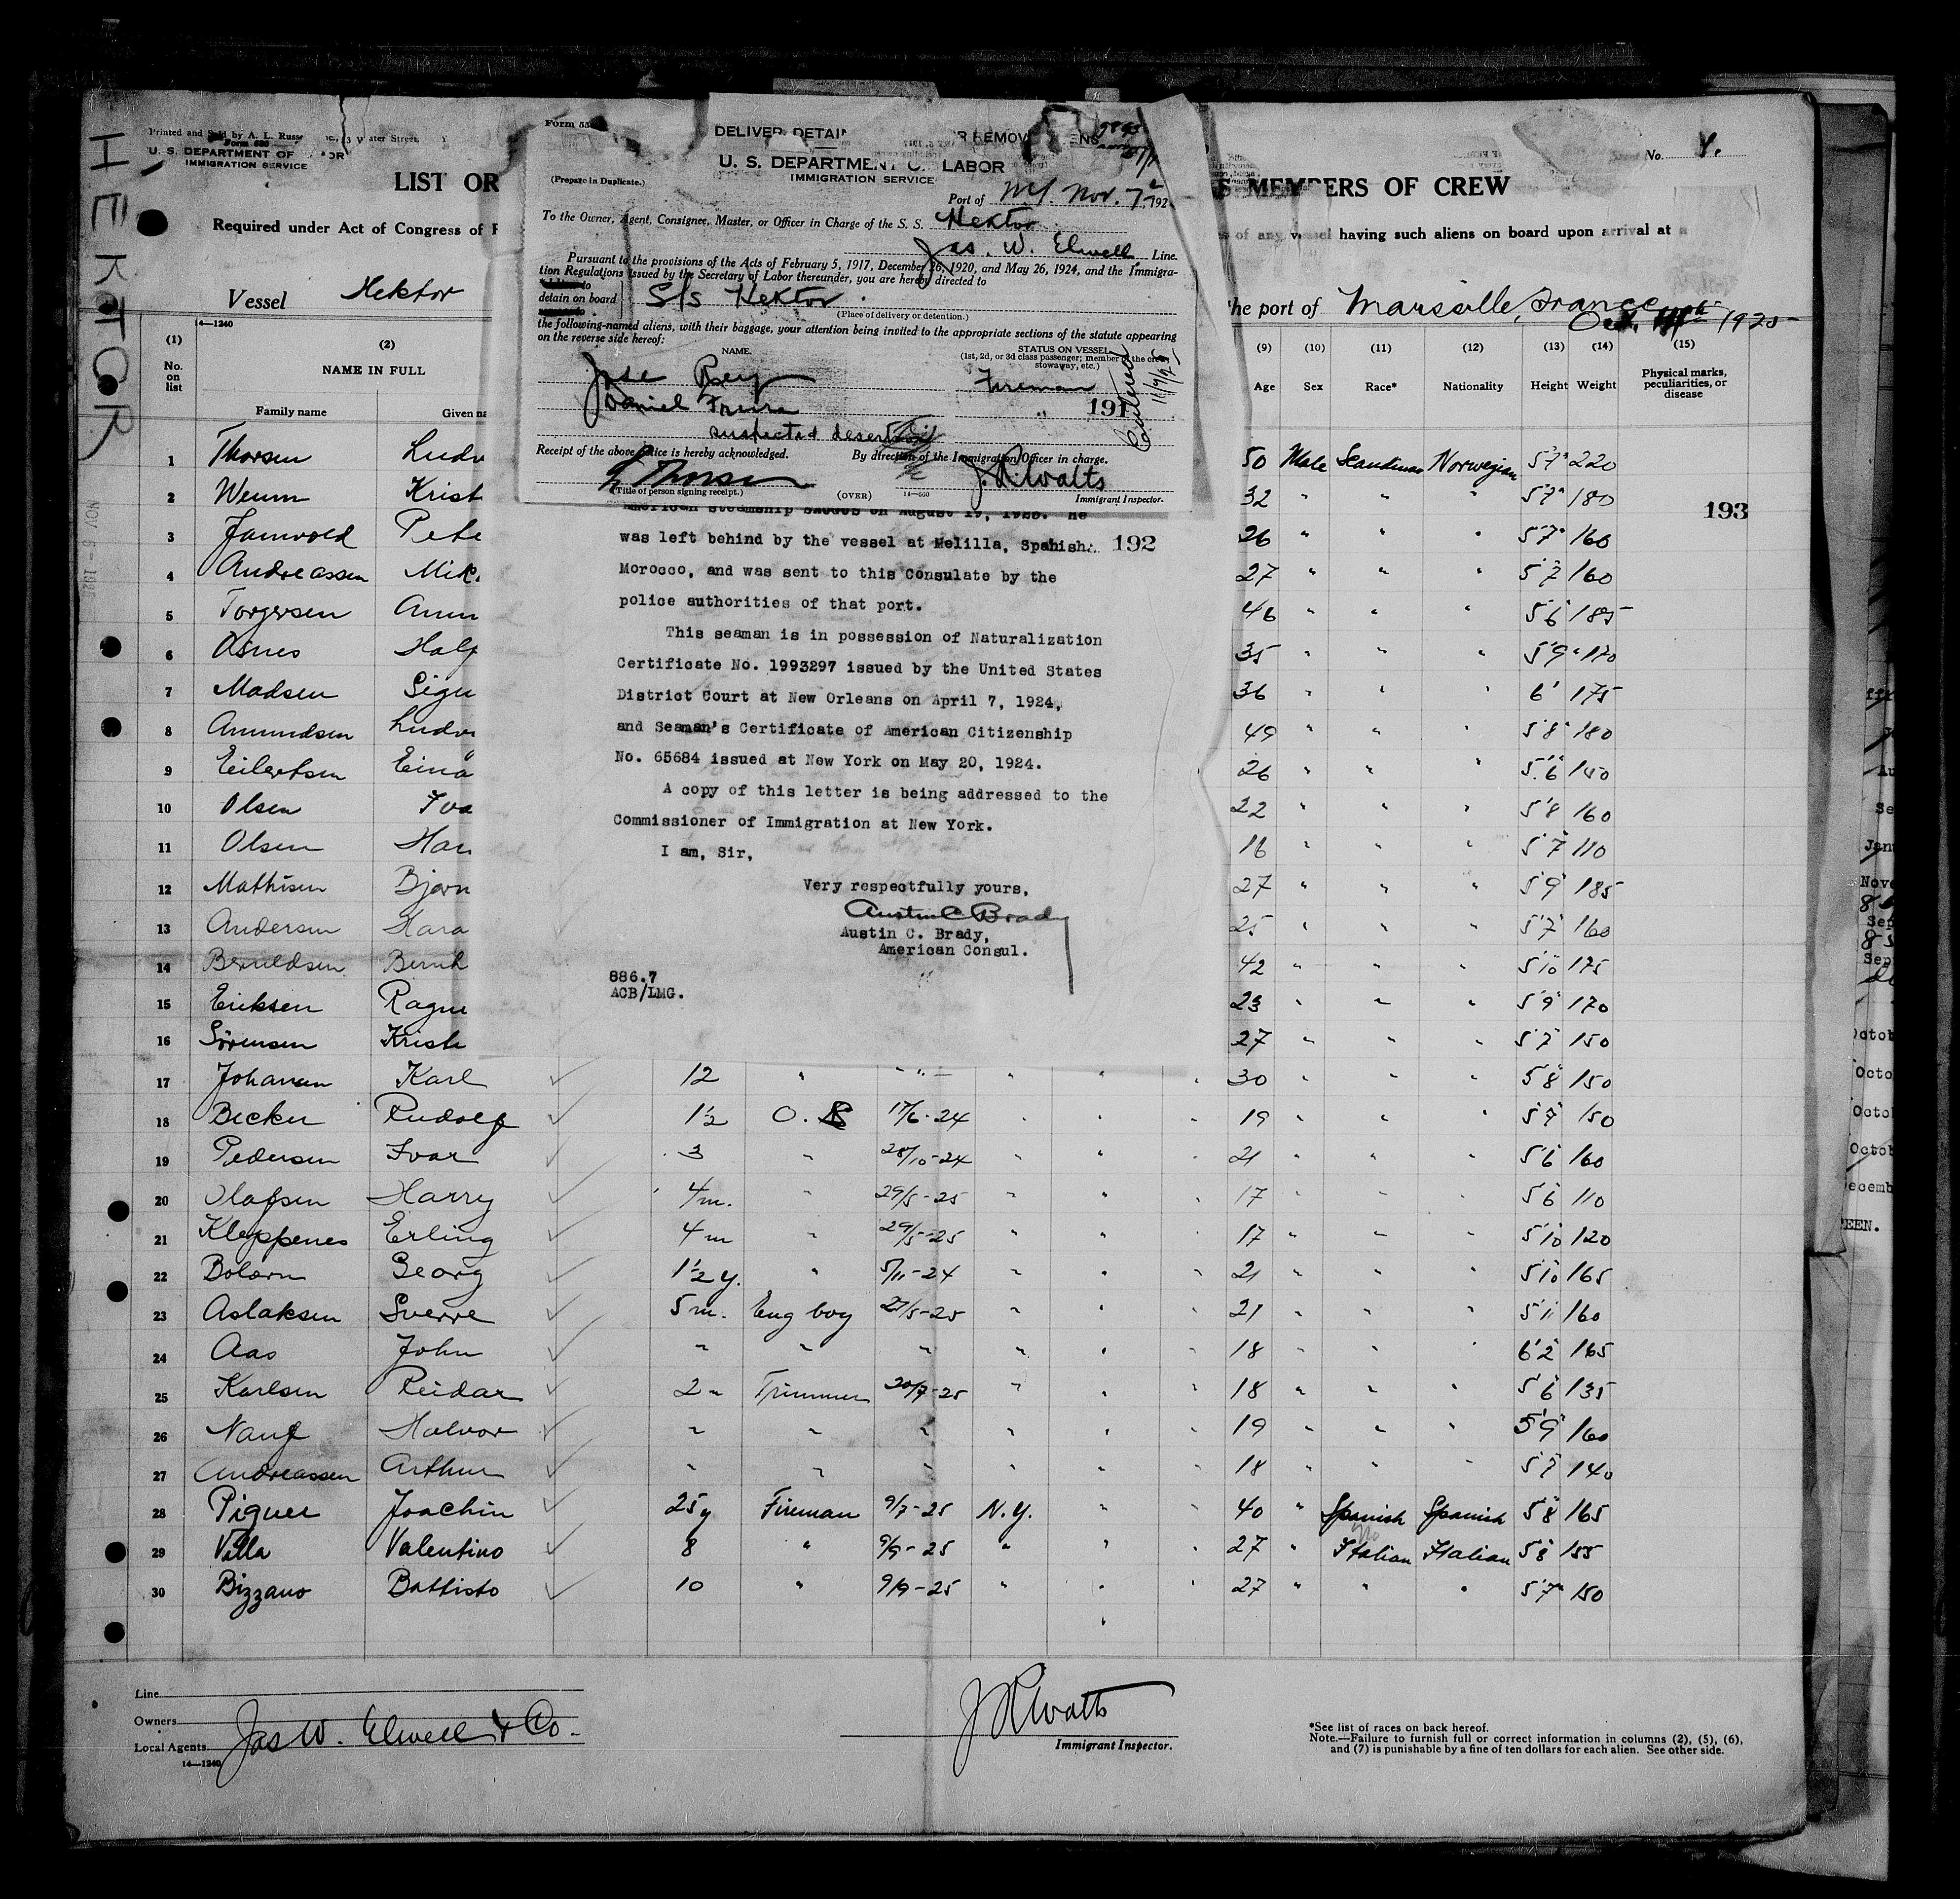 HEKTOR
Printed and Sold by A. L. Russ
Form 680
U. S. DEPARTMENT OF
IMMIGRATION SERVICE
LIST OR
S MEMBERS OF CREW
No. 4.
Required under Act of Congress of F
of any vessel having such aliens on board upon arrival at a
Vessel Hektor
the port of Marseille, France
Oct. 1925
14—1240
(1) (2) (9) (10) (11) (12) (13) (14) (15)
No. on list NAME IN FULL Age Sex Race* Nationality Height Weight Physical marks, peculiarities, or disease
Family name Given na
Form 55
DELIVER, DETAIN R REMOV ENS
U. S. DEPARTMENT O LABOR
IMMIGRATION SERVICE
(Prepare in Duplicate.)
Port of N.Y. Nov. 7 192
To the Owner, Agent, Consignee, Master, or Officer in Charge of the S. S. Hektor
Jas. W. Elwell Line.
Pursuant to the provisions of the Acts of February 5, 1917, December 26, 1920, and May 26, 1924, and the Immigra-
tion Regulations issued by the Secretary of Labor thereunder, you are hereby directed to
detain on board S/S Hektor.
(Place of delivery or detention.)
the following-named aliens, with their baggage, your attention being invited to the appropriate sections of the statute appearing
on the reverse side hereof:
NAME. STATUS ON VESSEL
(1st, 2d, or 3d class passenger; member of the crew,
stowaway, etc.)
Jose Rey Fireman
Daniel Freire "
191
suspected deserters
Receipt of the above notice is hereby acknowledged. By direction of the Immigration Officer in charge.
L Thorsen J.R. Watts
(Title of person signing receipt.) (OVER) 14—660 Immigrant Inspector.
American Steamship on August 19, 1925. He
was left behind by the vessel at Melilla, Spanish
192
Morocco, and was sent to this Consulate by the
police authorities of that port.
This seaman is in possession of Naturalization
Certificate No. 1993297 issued by the United States
District Court at New Orleans on April 7, 1924,
and Seaman's Certificate of American Citizenship
No. 65684 issued at New York on May 20, 1924.
A copy of this letter is being addressed to the
Commissioner of Immigration at New York.
I am, Sir,
Very respectfully yours,
Austin C Brady
Austin C. Brady,
American Consul.
886.7
ACB/LMG.
193
1 Thorsen Ludv 50 Male Scandinav Norwegian 5'7" 220
2 Wenn Krist 32 " " " 5'7" 180
3 Pete 26 " " " 5'7" 160
4 Andreassen Mik 27 " " " 5'7 160
5 Torgersen 46 " " " 5'6 185
6 Asnes Half 35 " " " 5'9" 170
7 Madsen Sigu 36 " " " 6' 175
8 Amundsen Ludv 49 " " " 5'8" 180
9 Eilertsen Eina 26 " " " 5'6" 150
10 Olsen Iva 22 " " " 5'8 160
11 Olsen Han 16 " " " 5'7 110
12 Mathisen Bjorn 27 " " " 5'9" 185
13 Andersen Hara 25 " " " 5'7" 160
14 Bernh 42 " " " 5'10 175
15 Eriksen Ragn 23 " " " 5'9" 170
16 Sörensen Krist 27 " " " 5'7" 150
17 Johansen Karl 12 " " " " " " 30 " " " 5'8" 150
18 Becker Rudolf 1½ O.S 17/6-24 " " " 19 " " " 5'7" 150
19 Pedersen Ivar 3 " 28/10-24 " " " 21 " " " 5'6" 160
20 Olafsen Harry 4m. " 29/5-25 " " " 17 " " " 5'6 110
21 Kleppenes Erling 4m " 29/5-25 " " " 17 " " " 5'10 120
22 Georg 1½ y. " 5/11-24 " " " 21 " " " 5'10 165
23 Aslaksen Sverre 5m. Eng boy 27/5-25 " " " 21 " " " 5'11 160
24 Aas John " " " " " " 18 " " " 6'2 165
25 Karlsen Reidar 2 " Trimmer 20/7-25 " " " 18 " " " 5'6 135
26 Halvor " " " " " " 19 " " " 5'9" 160
27 Andreassen Arthur " " " " " " 18 " " " 5'7 140
28 Piguer Joachin 25y Fireman 9/7-25 N.Y. " " 40 " Spanish Spanish 5'8" 165
29 Villa Valentino 8 " 9/9-25 " " " 27 " Italian Italian 5'8 155
30 Bizzano Battisto 10 " 9/9-25 " " " 27 " " " 5'7" 150
Line
Owners
Local Agents Jas W. Elwell & Co.
14—1240
J R Watts
Immigrant Inspector.
*See list of races on back hereof.
Note.—Failure to furnish full or correct information in columns (2), (5), (6),
and (7) is punishable by a fine of ten dollars for each alien. See other side.